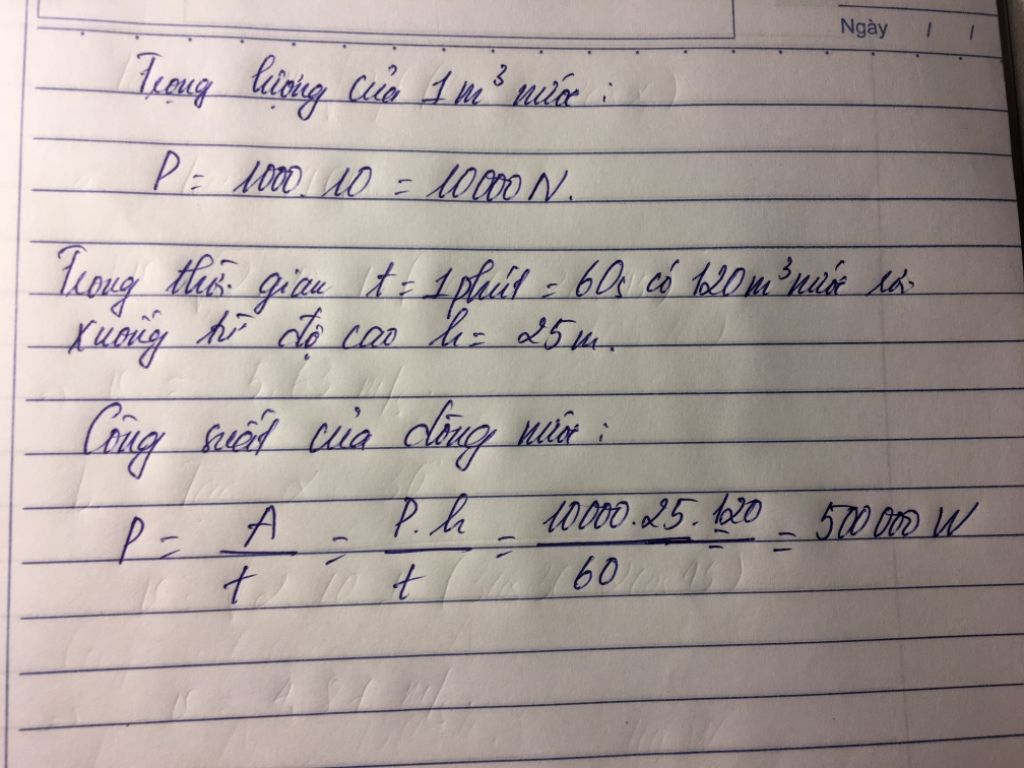 Ngày / /
Trọng lượng của 1m³ nước :
P = 1000.10 = 10000N.
Trong thời gian t = 1phút = 60s có 120m³ nước rơi
xuống từ độ cao h = 25m.
Công suất của dòng nước :
P = A/t = P.h/t = 10000.25.120/60 = 500000 W